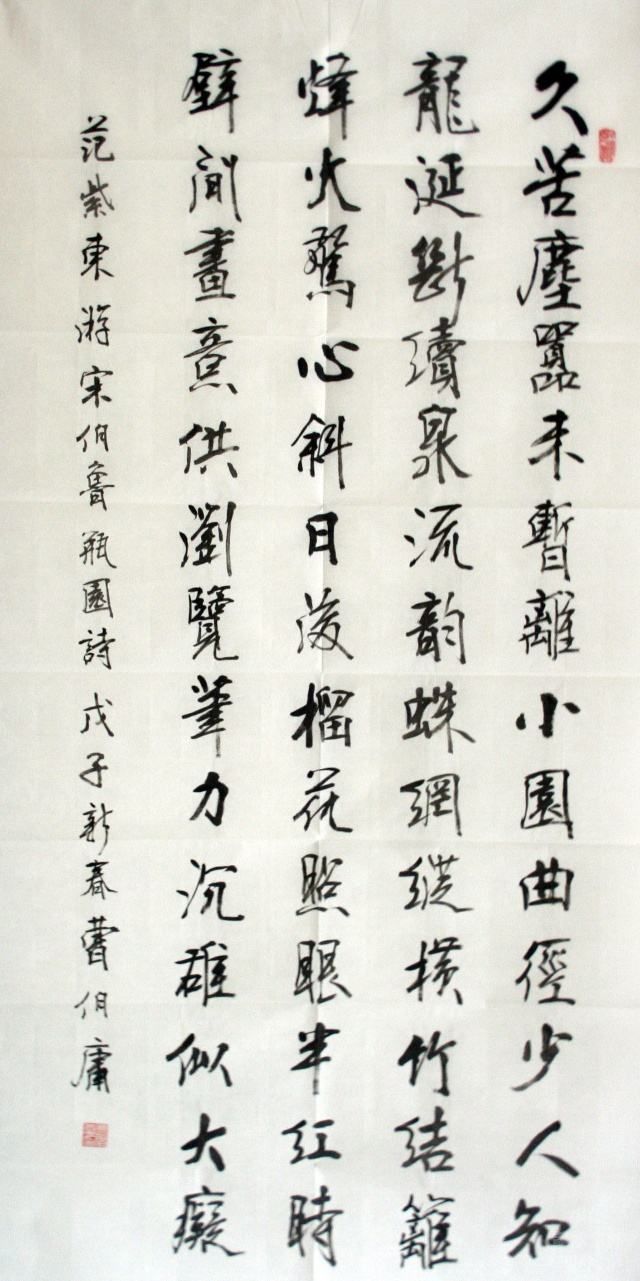 久苦塵囂未暫離小園曲徑少人知
龍涎斷續泉流韵蛛網縱橫竹結籬
烽火驚心斜日後榴花照眼半紅時
壁間畫意供瀏覽筆力沉雄似大癡
范紫東游宋伯魯瓶園詩戊子新春曹伯庸